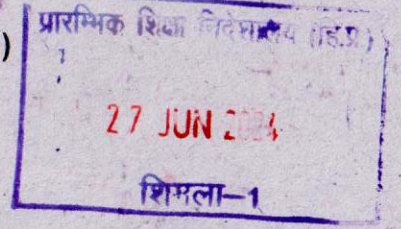 )
प्रारम्भिक शिक्षा निदेशालय (हि.प्र.)
27 JUN 2024
शिमला-1